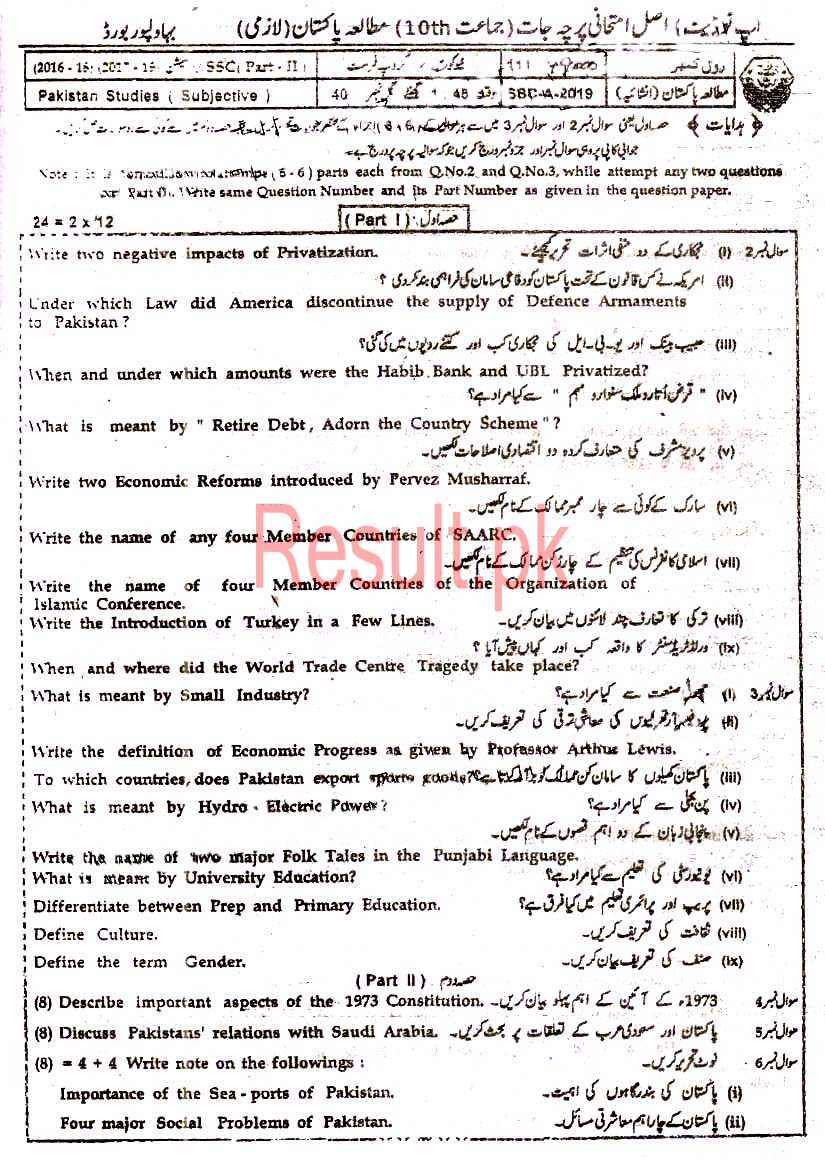 اپ ٹو ڈیٹ) اصل امتحانی پرچہ جات (جماعت 10th) مطالعہ پاکستان (لازمی) بہاولپور بورڈ
رول نمبر SSC( Part - II )
مطالعہ پاکستان (انشائیہ) SBD-IA-2019 وقت 1 : 45 گھنٹے کل نمبر 40 Pakistan Studies ( Subjective )
﴿ ہدایات ﴾ حصہ اول یعنی سوال نمبر 2 اور سوال نمبر 3 میں سے
جوابی کاپی پر وہی سوال نمبر اور جزو نمبر درج کریں جو کہ سوالیہ پرچہ پر درج ہے۔
Note : It is (6 - 6) parts each from Q.No.2 and Q.No.3, while attempt any two questions
Part II. Write same Question Number and its Part Number as given in the question paper.
24 = 2 x 12 (Part I) حصہ اول:
Write two negative impacts of Privatization. سوال نمبر 2 (i) نجکاری کے دو منفی اثرات تحریر کیجئے۔
(ii) امریکہ نے کس قانون کے تحت پاکستان کو دفاعی سامان کی فراہمی بند کر دی ؟
Under which Law did America discontinue the supply of Defence Armaments
to Pakistan?
(iii) حبیب بینک اور یو۔بی۔ایل کی نجکاری کب اور کتنے روپوں میں کی گئی؟
When and under which amounts were the Habib Bank and UBL Privatized?
(iv) " قرض اتارو ملک سنوارو مہم " سے کیا مراد ہے؟
What is meant by " Retire Debt, Adorn the Country Scheme "?
(v) پرویز مشرف کی متعارف کردہ دو اقتصادی اصلاحات لکھیں۔
Write two Economic Reforms introduced by Pervez Musharraf.
(vi) سارک کے کوئی سے چار ممبر ممالک کے نام لکھیں۔
Write the name of any four Member Countries of SAARC.
(vii) اسلامی کانفرنس کی تنظیم کے چار رکن ممالک کے نام لکھیں۔
Write the name of four Member Countries of the Organization of
Islamic Conference.
Write the Introduction of Turkey in a Few Lines. (viii) ترکی کا تعارف چند لائنوں میں بیان کریں۔
(ix) ورلڈ ٹریڈ سنٹر کا واقعہ کب اور کہاں پیش آیا ؟
When and where did the World Trade Centre Tragedy take place?
What is meant by Small Industry? سوال نمبر 3 (i) چھوٹی صنعت سے کیا مراد ہے؟
(ii) پروفیسر آرتھر لیوس کی معاشی ترقی کی تعریف کریں۔
Write the definition of Economic Progress as given by Professor Arthur Lewis.
To which countries, does Pakistan export sports goods? (iii) پاکستان کھیلوں کا سامان کن ممالک کو برآمد کرتا ہے؟
What is meant by Hydro - Electric Power? (iv) پن بجلی سے کیا مراد ہے؟
(v) پنجابی زبان کے دو اہم قصوں کے نام لکھیں۔
Write the name of two major Folk Tales in the Punjabi Language.
What is meant by University Education? (vi) یونیورسٹی کی تعلیم سے کیا مراد ہے؟
Differentiate between Prep and Primary Education. (vii) پریپ اور پرائمری تعلیم میں کیا فرق ہے؟
Define Culture. (viii) ثقافت کی تعریف کریں۔
Define the term Gender. (ix) صنف کی تعریف بیان کریں۔
(Part II) حصہ دوم
(8) Describe important aspects of the 1973 Constitution. سوال نمبر 4 1973ء کے آئین کے اہم پہلو بیان کریں۔
(8) Discuss Pakistans' relations with Saudi Arabia. سوال نمبر 5 پاکستان اور سعودی عرب کے تعلقات پر بحث کریں۔
(8) = 4 + 4 Write note on the followings : سوال نمبر 6 نوٹ تحریر کریں۔
Importance of the Sea - ports of Pakistan. (i) پاکستان کی بندرگاہوں کی اہمیت۔
Four major Social Problems of Pakistan. (ii) پاکستان کے چار اہم معاشرتی مسائل۔
Result.pk